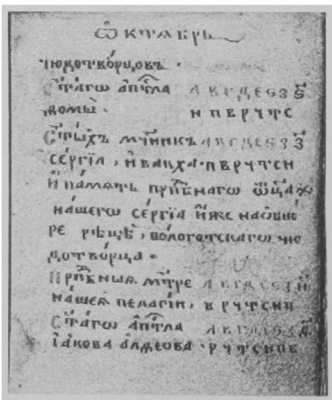 Ѡктѧбрь
чюдотворцовъ ·
Ст҃аго ап҇тла а в г д е ѕ з ѕ҃
Ѳомы · и п в р ч т с
Ст҃ыхъ мч҃никъ а в г д е ѕ з з҃
Сергїа, и вакха · п в р ч т с и
И память прпⷣбнаго ѡ҃ца
нашего сергїа иже на ѡбно
ре рѣцѣ, вологотскаго чю
дотворца ·
Прпⷣбныѧ мт҃ре а в г д е ѕ з и҃
нашеѧ пелагїи, в р ч т с и п
Ст҃аго ап҇тла а в г д е ѕ з
Іакова алѳеова · р ч т с и п в